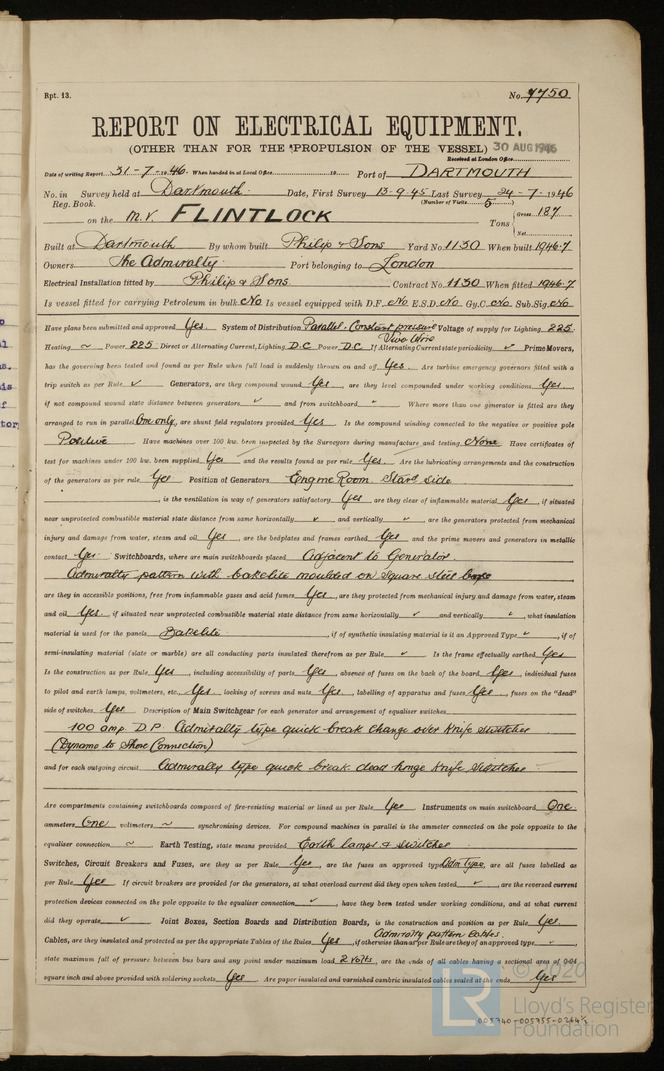 Rpt. 13.
No. 7750
REPORT ON ELECTRICAL EQUIPMENT.
(OTHER THAN FOR THE PROPULSION OF THE VESSEL) 30 AUG 1946
Received at London Office
Date of writing Report 31-7-1946. When handed in at Local Office 19 Port of DARTMOUTH
No. in Survey held at Dartmouth Date, First Survey 13-9-45 Last Survey 24-7-1946
Reg. Book. (Number of Visits 5)
on the M.V. FLINTLOCK Tons { Gross 187
Net
Built at Dartmouth By whom built Philip & Sons Yard No. 1130 When built 1946.7
Owners The Admiralty Port belonging to London
Electrical Installation fitted by Philip & Sons Contract No. 1130 When fitted 1946.7
Is vessel fitted for carrying Petroleum in bulk No Is vessel equipped with D.F. No E.S.D. No Gy.C. No Sub.Sig. No
Have plans been submitted and approved Yes. System of Distribution Parallel. Constant pressure Voltage of supply for Lighting 225
Two Wire
Heating ~ Power 225 Direct or Alternating Current, Lighting D.C Power D.C If Alternating Current state periodicity ✓ Prime Movers,
has the governing been tested and found as per Rule when full load is suddenly thrown on and off Yes. Are turbine emergency governors fitted with a
trip switch as per Rule ✓ Generators, are they compound wound Yes, are they level compounded under working conditions Yes,
if not compound wound state distance between generators ✓ and from switchboard ✓ Where more than one generator is fitted are they
arranged to run in parallel One only, are shunt field regulators provided Yes. Is the compound winding connected to the negative or positive pole
Positive Have machines over 100 kw. been inspected by the Surveyors during manufacture and testing None Have certificates of
test for machines under 100 kw. been supplied Yes and the results found as per rule Yes. Are the lubricating arrangements and the construction
of the generators as per rule Yes Position of Generators Engine Room. Starb side
, is the ventilation in way of generators satisfactory Yes are they clear of inflammable material Yes, if situated
near unprotected combustible material state distance from same horizontally ✓ and vertically ✓, are the generators protected from mechanical
injury and damage from water, steam and oil Yes, are the bedplates and frames earthed Yes and the prime movers and generators in metallic
contact Yes. Switchboards, where are main switchboards placed Adjacent to Generator.
Admiralty pattern with bakelite moulded on square steel
are they in accessible positions, free from inflammable gases and acid fumes Yes, are they protected from mechanical injury and damage from water, steam
and oil Yes, if situated near unprotected combustible material state distance from same horizontally ✓ and vertically ✓, what insulation
material is used for the panels Bakelite, if of synthetic insulating material is it an Approved Type ✓, if of
semi-insulating material (slate or marble) are all conducting parts insulated therefrom as per Rule ✓ Is the frame effectually earthed Yes
Is the construction as per Rule Yes, including accessibility of parts Yes, absence of fuses on the back of the board Yes, individual fuses
to pilot and earth lamps, voltmeters, etc., Yes, locking of screws and nuts Yes, labelling of apparatus and fuses Yes, fuses on the "dead"
side of switches Yes Description of Main Switchgear for each generator and arrangement of equaliser switches
100 amp. D.P. Admiralty type quick break change over knife switches
(Dynamo to Shore Connection)
and for each outgoing circuit Admiralty type quick break dead hinge knife switches
Are compartments containing switchboards composed of fire-resisting material or lined as per Rule Yes Instruments on main switchboard One
ammeters One voltmeters ~ synchronising devices. For compound machines in parallel is the ammeter connected on the pole opposite to the
equaliser connection ~. Earth Testing, state means provided Earth lamps & switches
Switches, Circuit Breakers and Fuses, are they as per Rule Yes, are the fuses an approved type Adm Type, are all fuses labelled as
per Rule Yes If circuit breakers are provided for the generators, at what overload current did they open when tested ✓, are the reversed current
protection devices connected on the pole opposite to the equaliser connection ✓, have they been tested under working conditions, and at what current
did they operate ✓ Joint Boxes, Section Boards and Distribution Boards, is the construction and position as per Rule Yes
Admiralty pattern Cables.
Cables, are they insulated and protected as per the appropriate Tables of the Rules Yes, if otherwise than as per Rule are they of an approved type,
state maximum fall of pressure between bus bars and any point under maximum load 2 volts, are the ends of all cables having a sectional area of 0·04
square inch and above provided with soldering sockets Yes Are paper insulated and varnished cambric insulated cables sealed at the ends Yes
© 2020
LR
Lloyd's Register
Foundation
005740-005755-0264 1/2